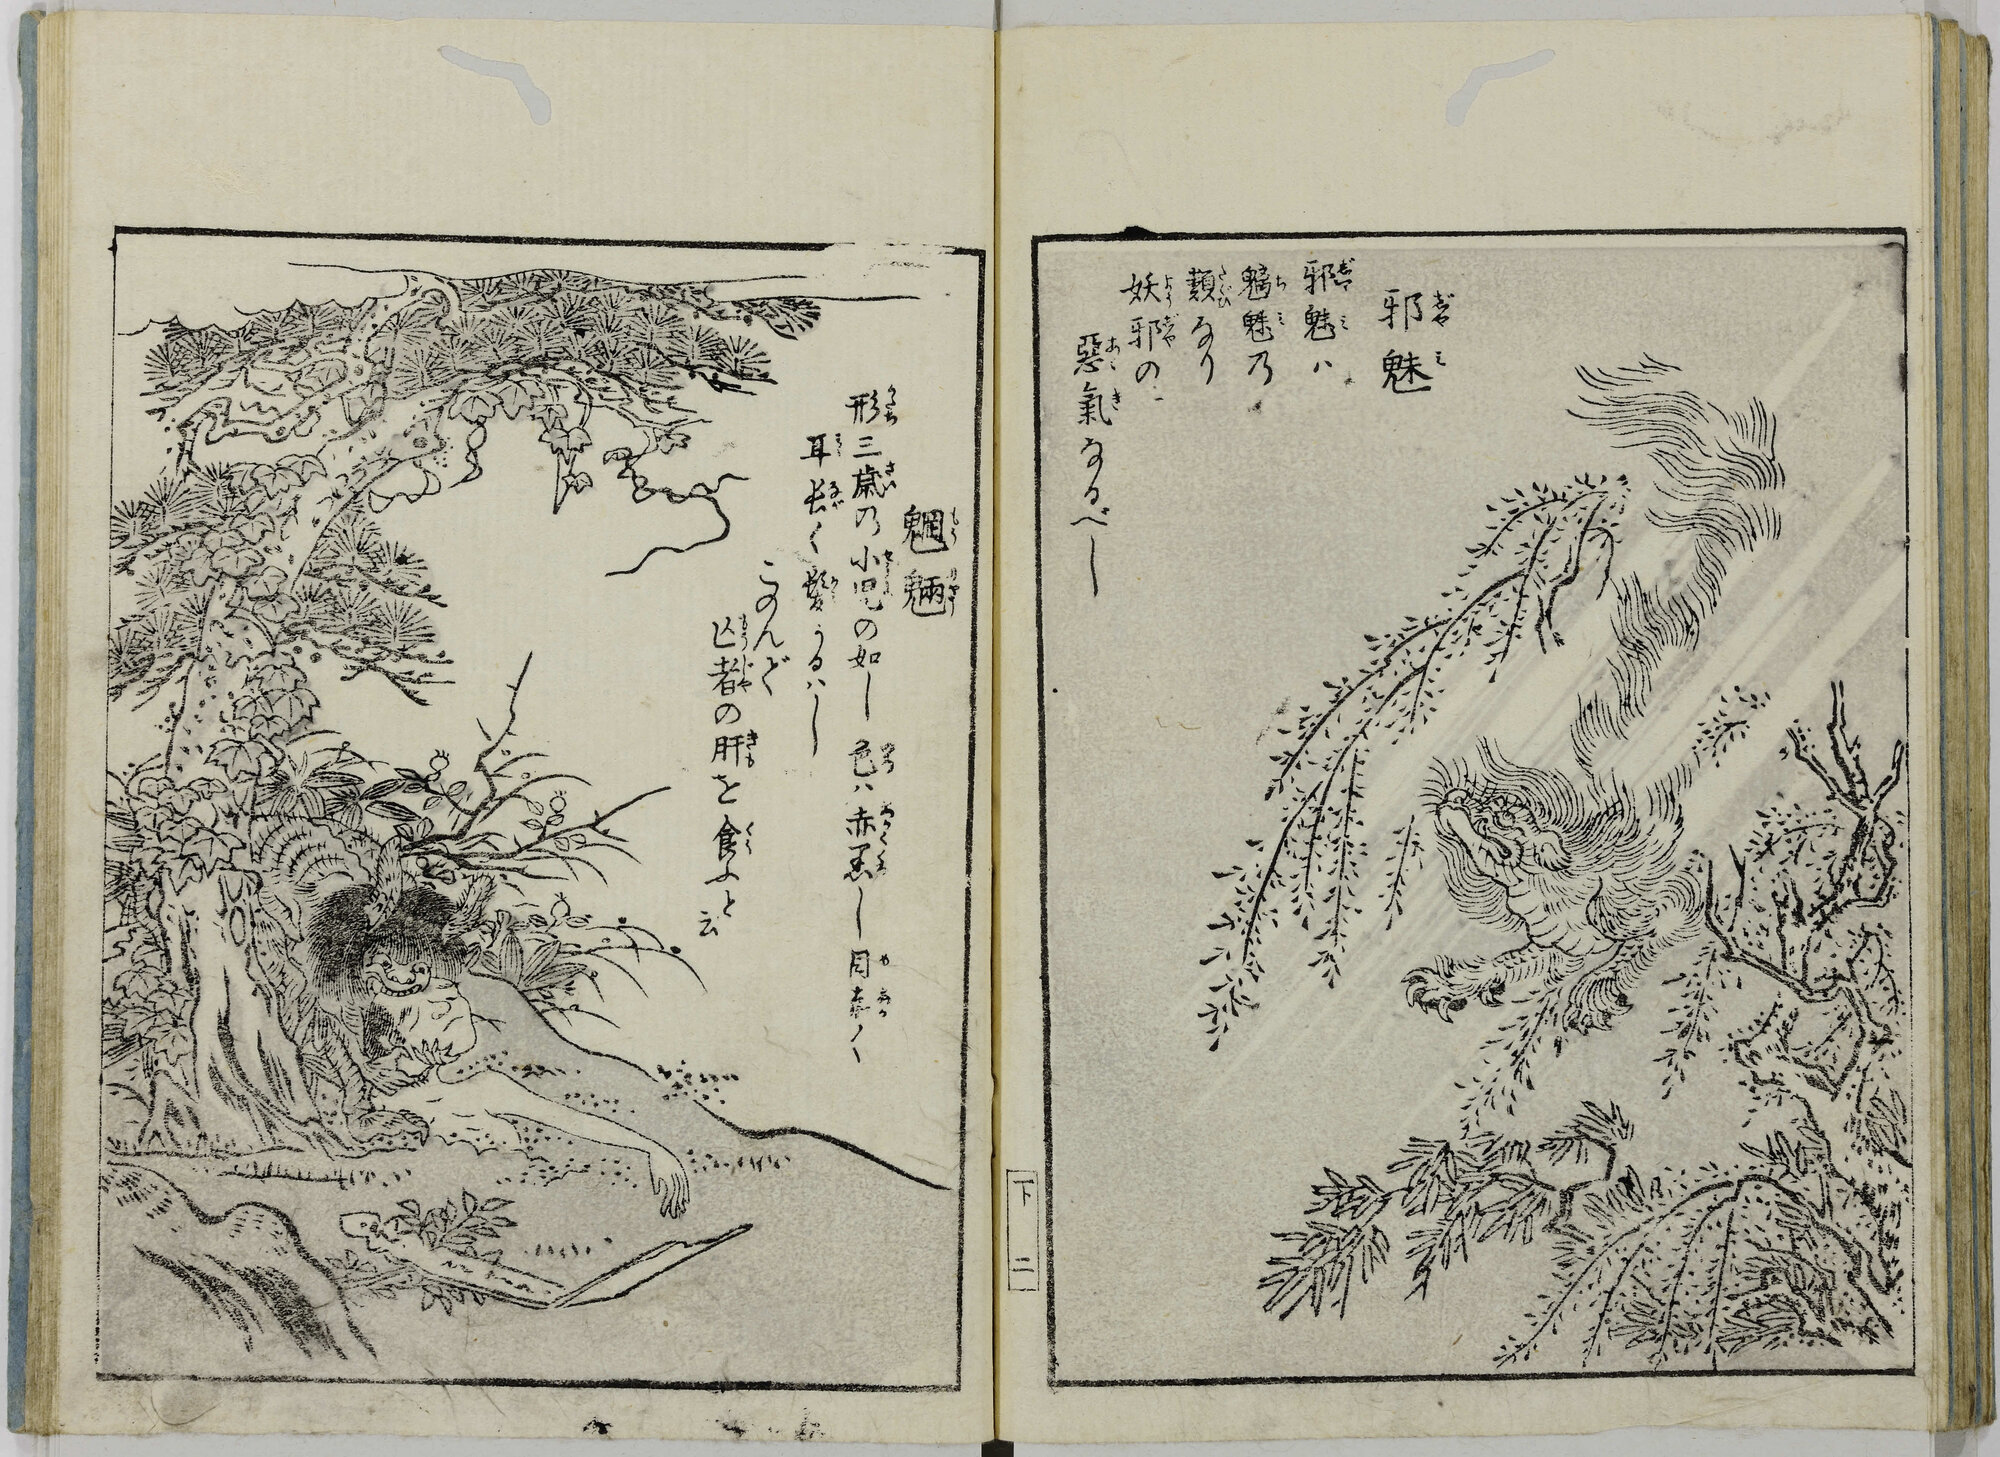 邪魅
邪魅ハ
魑魅の
類なり
妖邪の
惡氣なるべし
下 二
魍魎
形三歳の小児の如し色ハ赤黒し目赤く
耳長く髪うるハし
このんで
亡者の肝を食ふと
云